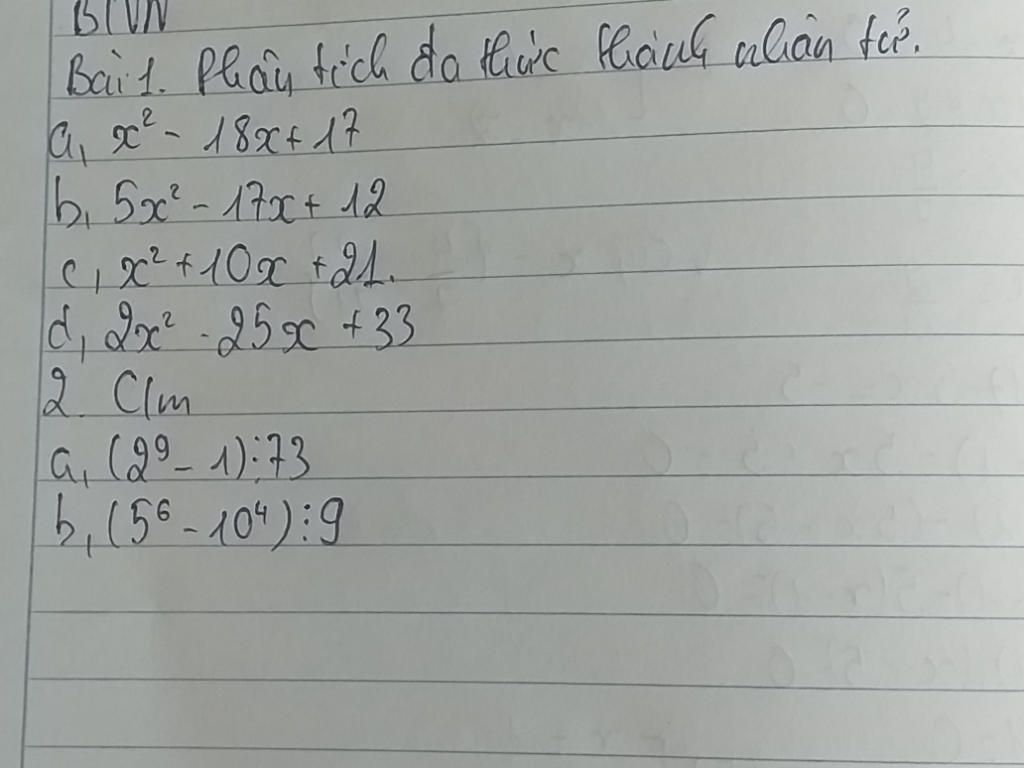 BTVN
Bài 1. Phân tích đa thức thành nhân tử.
a, x² - 18x + 17
b, 5x² - 17x + 12
c, x² + 10x + 21.
d, 2x² - 25x + 33
2. C/m
a, (2⁹ - 1) ⋮ 73
b, (5⁶ - 10⁴) ⋮ 9